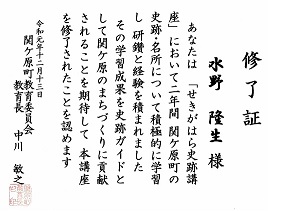 修了証
水野 隆生 様
あなたは 「せきがはら史跡講
座」において二年間 関ケ原町の
史跡・名所について積極的に学習
し 研鑽と経験を積まれました
その学習成果を史跡ガイドと
して関ケ原のまちづくりに貢献
されることを期待して 本講座
を修了されたことを認めます
令和元年十二月十三日
関ケ原町教育委員会
教育長 中川 敏之